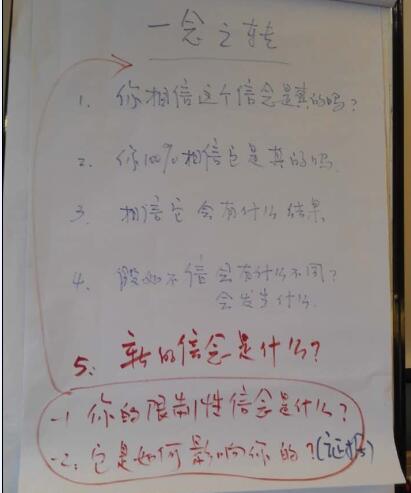 一念之转
1. 你相信这个信念是真的吗?
2. 你100%相信它是真的吗
3. 相信它会有什么结果
4. 假如不信会有什么不同?
会发生什么
5. 新的信念是什么?
-1 你的限制性信念是什么?
-2. 它是如何影响你的?(证据)